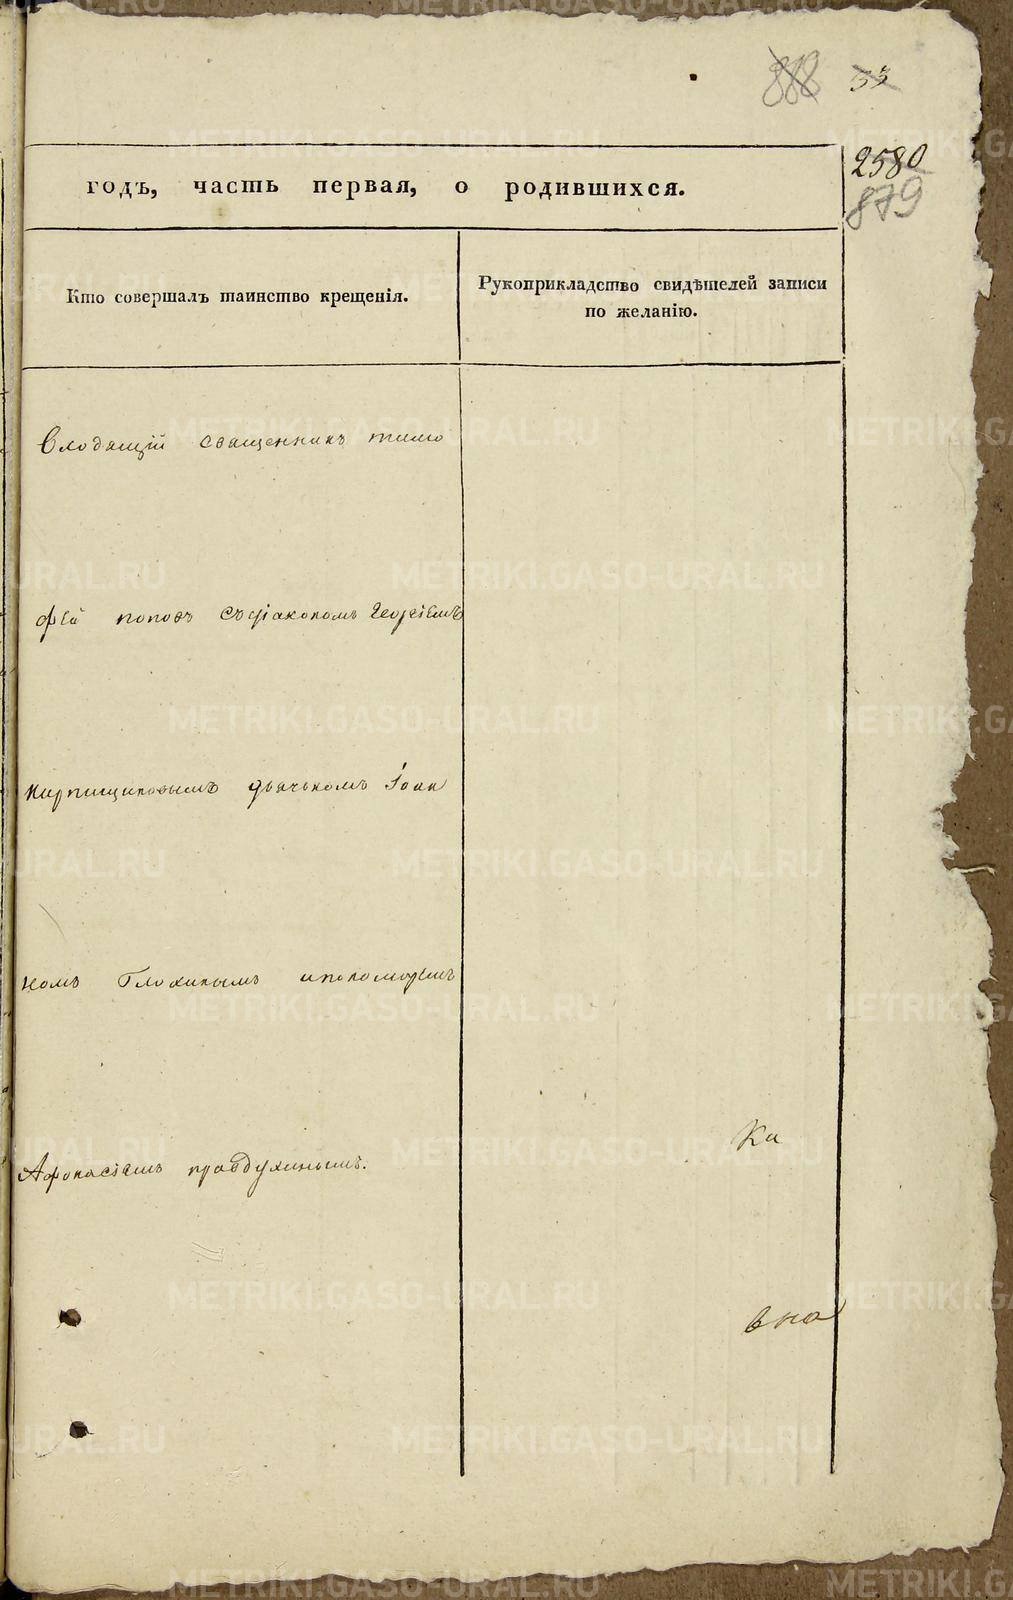 888 33
2580
879
годъ, часть первая, о родившихся.
Кто совершалъ таинство крещенія.
Рукоприкладство свидѣтелей записи
по желанію.
священникъ тимо
фей попов съ діакономъ Георгіемъ
Кирпищиковымъ дьячькомъ Іоан
номъ Глохинымъ ипономаремъ
Ка
Афонасіемъ правдухинымъ.
вна
METRIKI.GASO-URAL.RU